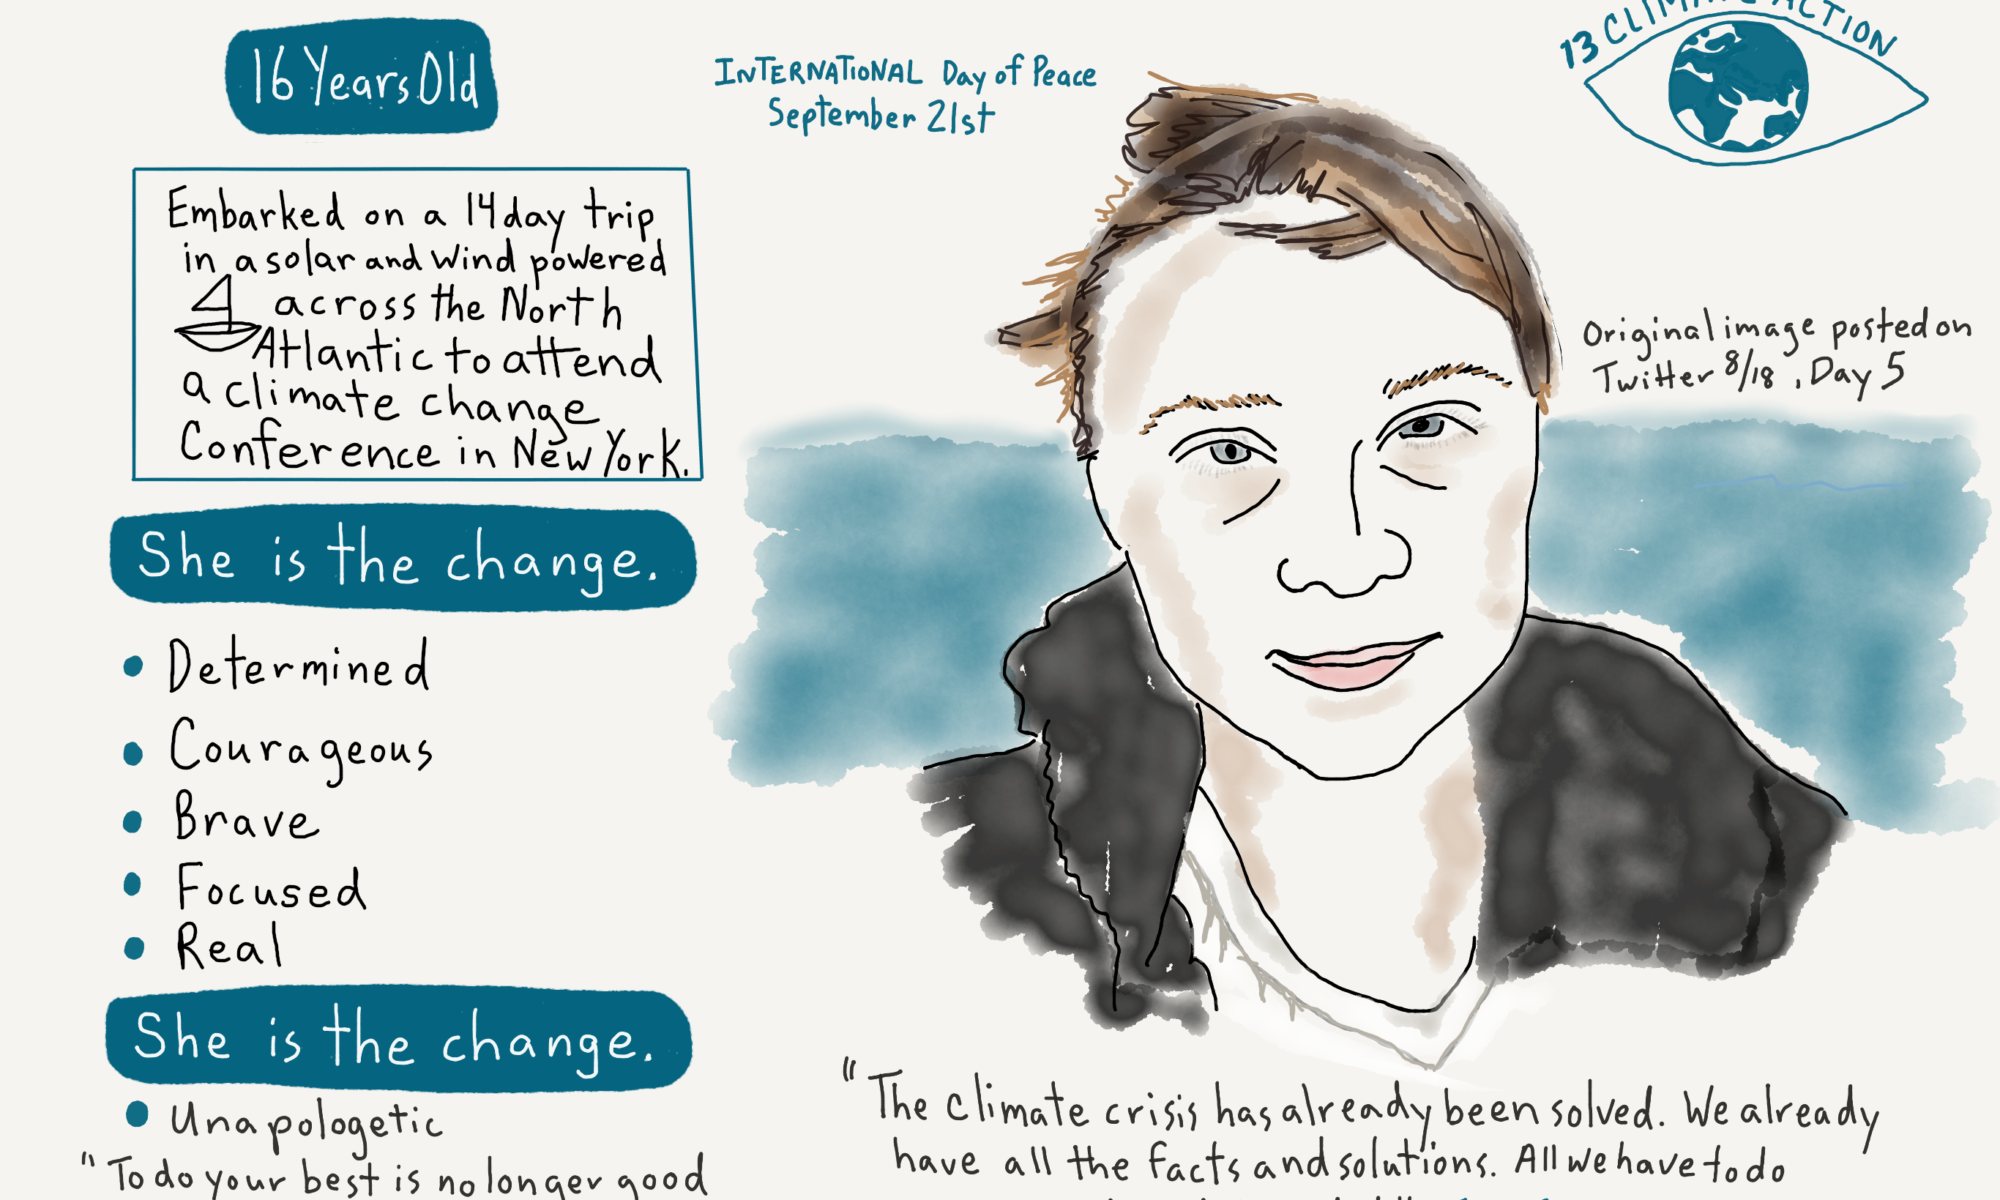 16 Years Old
Embarked on a 14 day trip
in a solar and wind powered
across the North
Atlantic to attend
a climate change
Conference in New York.
She is the change.
Determined
Courageous
Brave
Focused
Real
She is the change.
Unapologetic
"To do your best is no longer good
INTERNATIONAL Day of Peace
September 21st
13 CLIMATE ACTION
Original image posted on
Twitter 8/18, Day 5
"The climate crisis has already been solved. We already
have all the facts and solutions. All we have to do